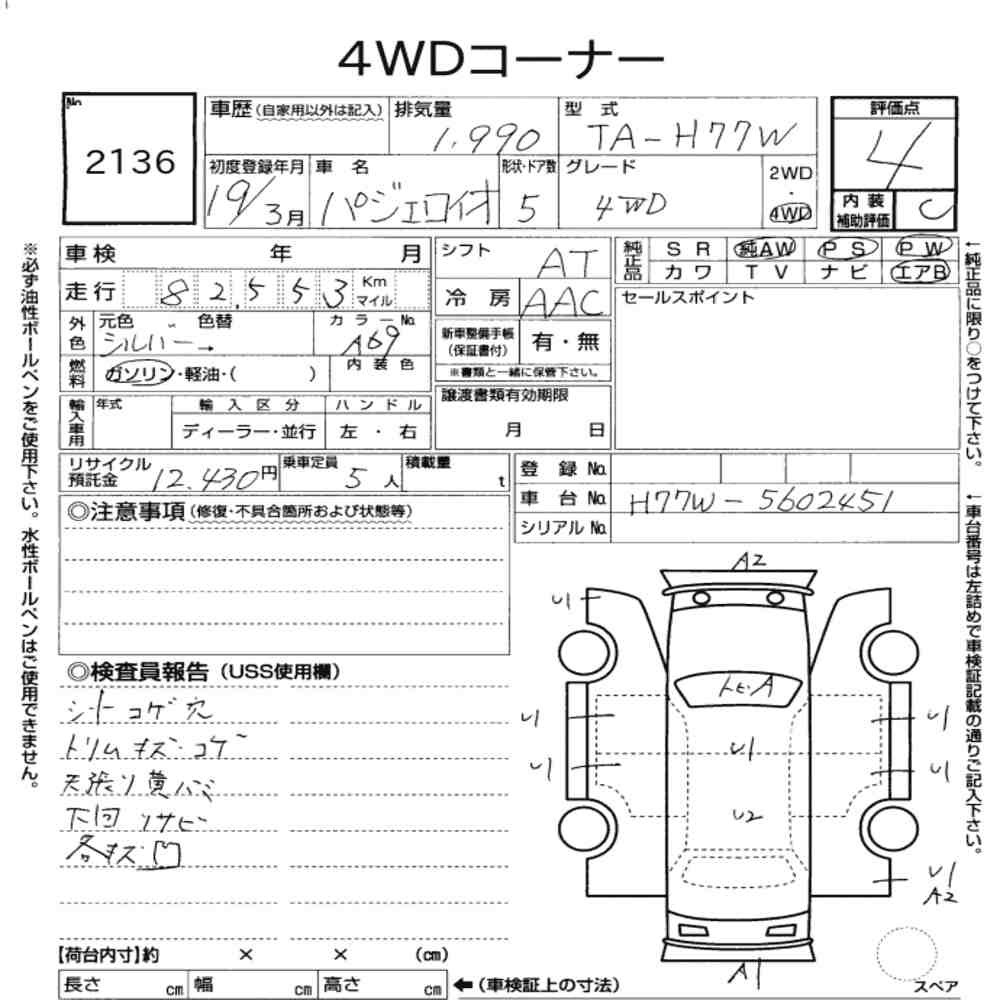 4WDコーナー
No. 2136
車歴(自家用以外は記入) 排気量 1,990 型式 TA-H77W 評価点 4
初度登録年月 19/3月 車名 パジェロイオ 形状・ドア数 5 グレード 4WD 2WD・4WD 内装補助評価 C
車検 年 月
走行 82,553 Km マイル
外色 元色 シルバー → 色替 カラーNo. A69
燃料 ガソリン・軽油・( ) 内装色
輸入車用 年式 輸入区分 ディーラー・並行 ハンドル 左・右
シフト AT
冷房 AAC
新車整備手帳(保証書付) 有・無
※書類と一緒に保管下さい。
譲渡書類有効期限 月 日
純正品 SR 純AW PS PW
カワ TV ナビ エアB
セールスポイント
リサイクル預託金 12,430円 乗車定員 5人 積載量 t
登録No.
車台No. H77W-5602451
シリアルNo.
◎注意事項(修復・不具合箇所および状態等)
◎検査員報告(USS使用欄)
シートコゲ穴
トリムキズ・コゲ
天張り黄バミ
下回りサビ
各キズ凹
A2
U1
トビ・A
U1 U1
U1
U1 U1
U2
U1
A2
A1
スペア
【荷台内寸】約 × × (cm)
長さ cm 幅 cm 高さ cm ←(車検証上の寸法)
※必ず油性ボールペンをご使用下さい。水性ボールペンはご使用できません。
←純正品に限り○をつけて下さい。
←車台番号は左詰めで車検証記載の通りご記入下さい。